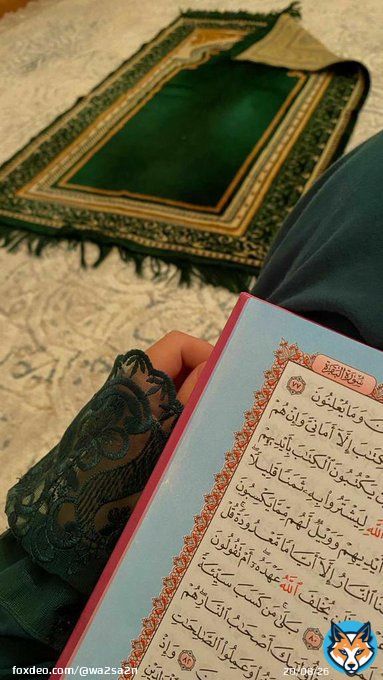 سُورَةُ البَقَرَةِ
وَمَا يُعْلِنُونَ ٧٧
إِلَّا أَمَانِيَّ وَإِنْ هُمْ
يَكْتُبُونَ الْكِتَٰبَ بِأَيْدِيهِمْ
اللَّهِ لِيَشْتَرُوا بِهِ ثَمَنًا قَلِيلًا
أَيْدِيهِمْ وَوَيْلٌ لَّهُم مِّمَّا يَكْسِبُونَ
النَّارُ إِلَّا أَيَّامًا مَّعْدُودَةً قُلْ
يُخْلِفَ اللَّهُ عَهْدَهُ أَمْ تَقُولُونَ
بَلَىٰ مَن كَسَبَ سَيِّئَةً
أَصْحَٰبُ النَّارِ هُمْ
وَعَمِلُوا الصَّٰلِحَٰتِ
٨٢ وَإِذْ
foxdeo.com/@wa2sa2n
20/08/26